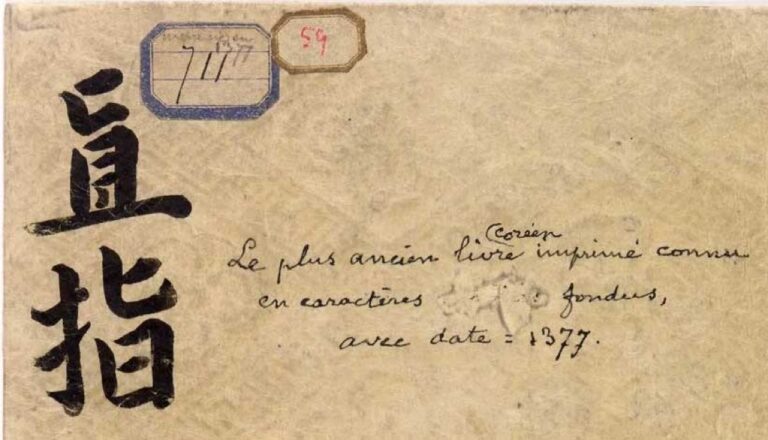 711
59
直指
Le plus ancien livre coréen imprimé connu
en caractères fondus,
avec date = 1377.